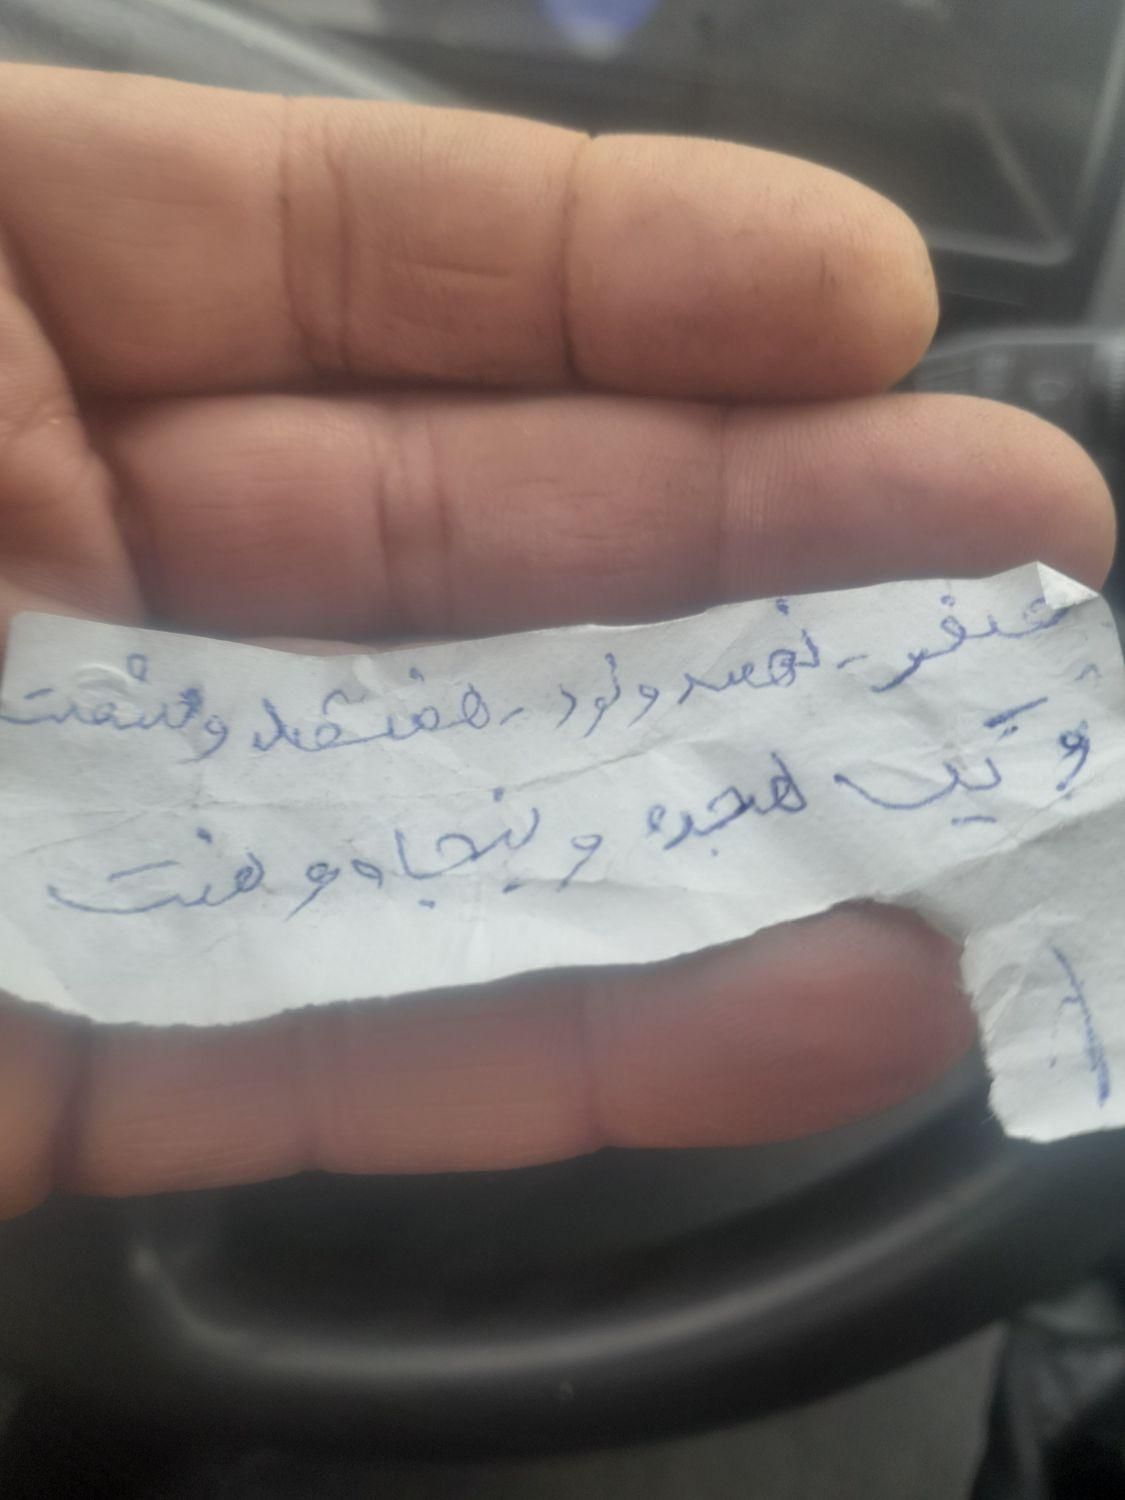 صفر - نهصد و نود - هفتصد و شصت
و یک هجده و پنجاه و هفت